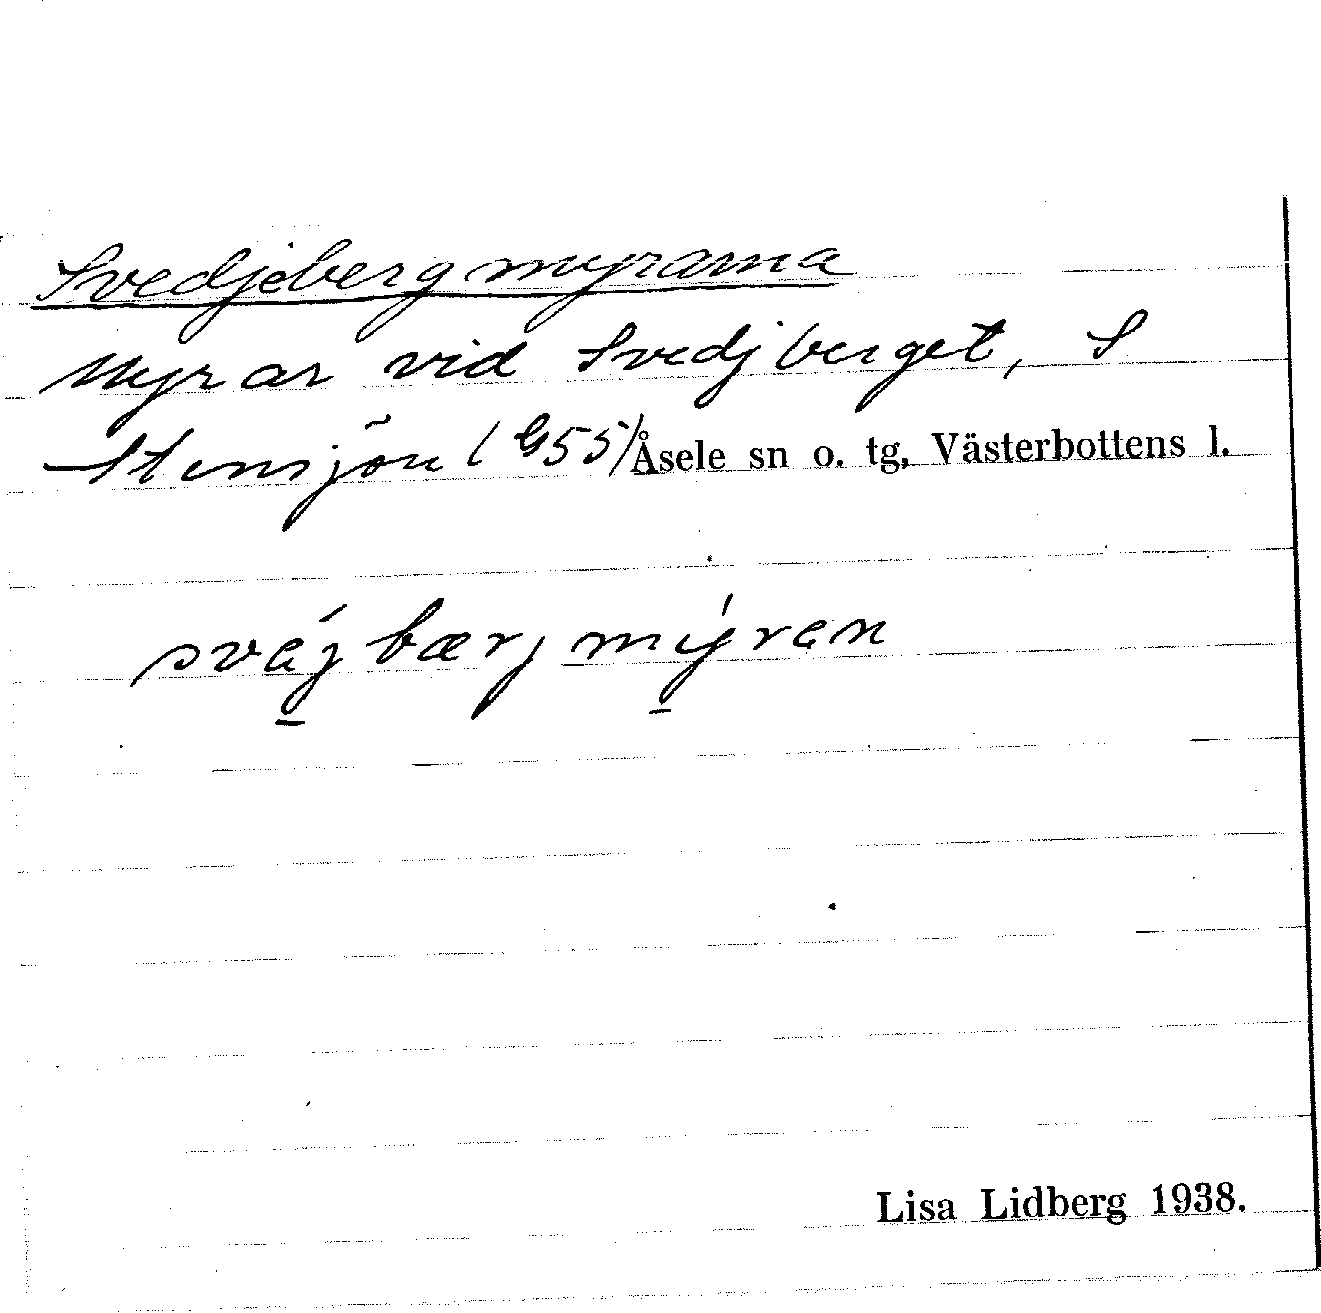 Svedjebergmyrarna
Myrar vid Svedjberget, S
Stensjön (G55) Åsele sn o. tg, Västerbottens l.
svéjbærjmýran
Lisa Lidberg 1938.